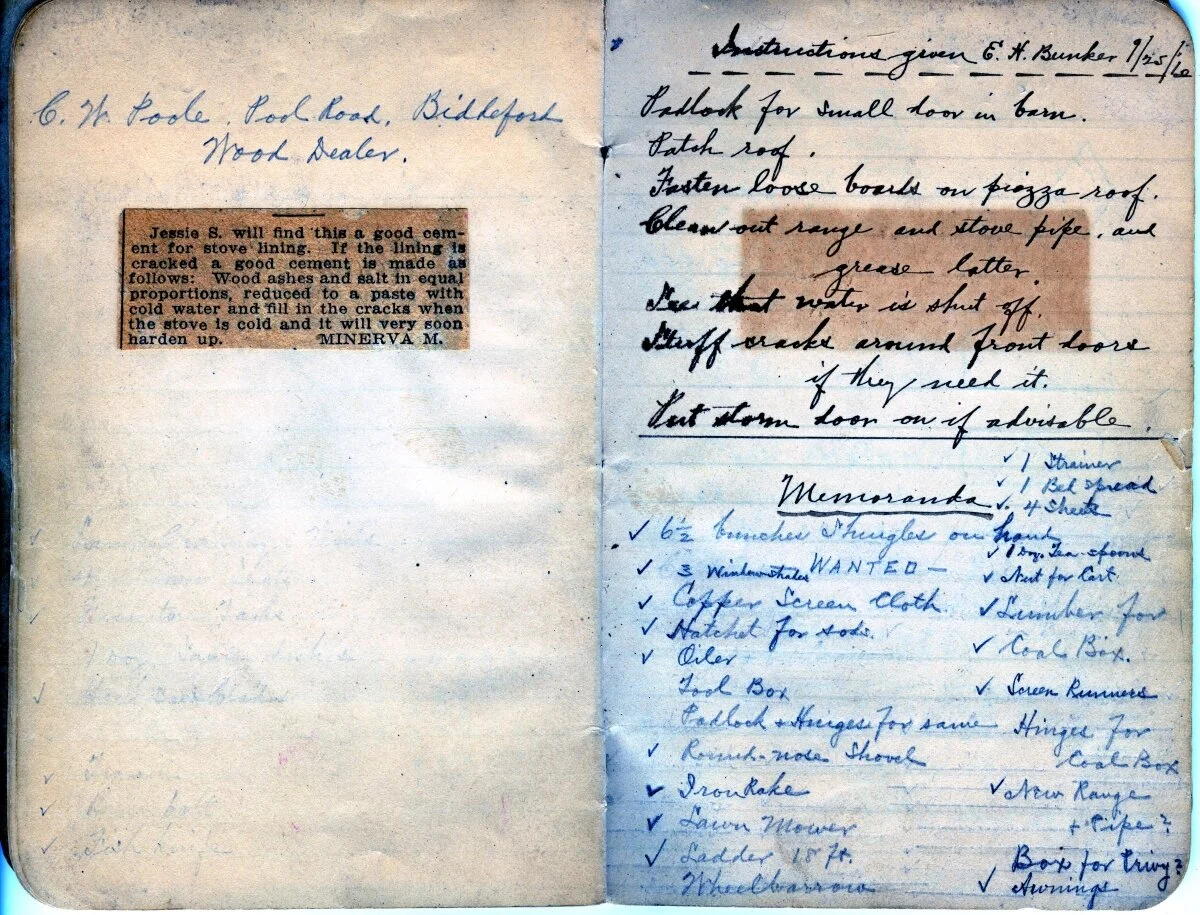 C. W. Poole, Pool Road, Biddeford
Wood Dealer.
Jessie S. will find this a good cem-
ent for stove lining. If the lining is
cracked a good cement is made as
follows: Wood ashes and salt in equal
proportions, reduced to a paste with
cold water and fill in the cracks when
the stove is cold and it will very soon
harden up. MINERVA M.
Instructions given E. H. Bunker 9/25/16
Padlock for small door in barn.
Patch roof.
Fasten loose boards on piazza roof.
Clean out range and stove pipe, and
grease latter
See that water is shut off.
Stuff cracks around front doors
if they need it.
Put storm door on if advisable.
Memoranda
✓ 1 Strainer
✓ 1 Bed spread
✓ 4 Sheets
✓ 6½ bunches Shingles on hand
✓ 1 Doz. Tea-spoons
✓ 3 Window shades WANTED —
✓ Nut for Cart.
✓ Copper Screen Cloth
✓ Hatchet for sods.
✓ Oiler
Tool Box
Padlock + Hinges for same
✓ Round-nose Shovel
✓ Iron Rake
✓ Lawn Mower
✓ Ladder 18 ft.
Wheelbarrow
✓ Lumber for
✓ Coal Box.
✓ Screen Runners
Hinges for
Coal Box
✓ New Range
+ Pipe?
Box for Privy?
✓ Awnings